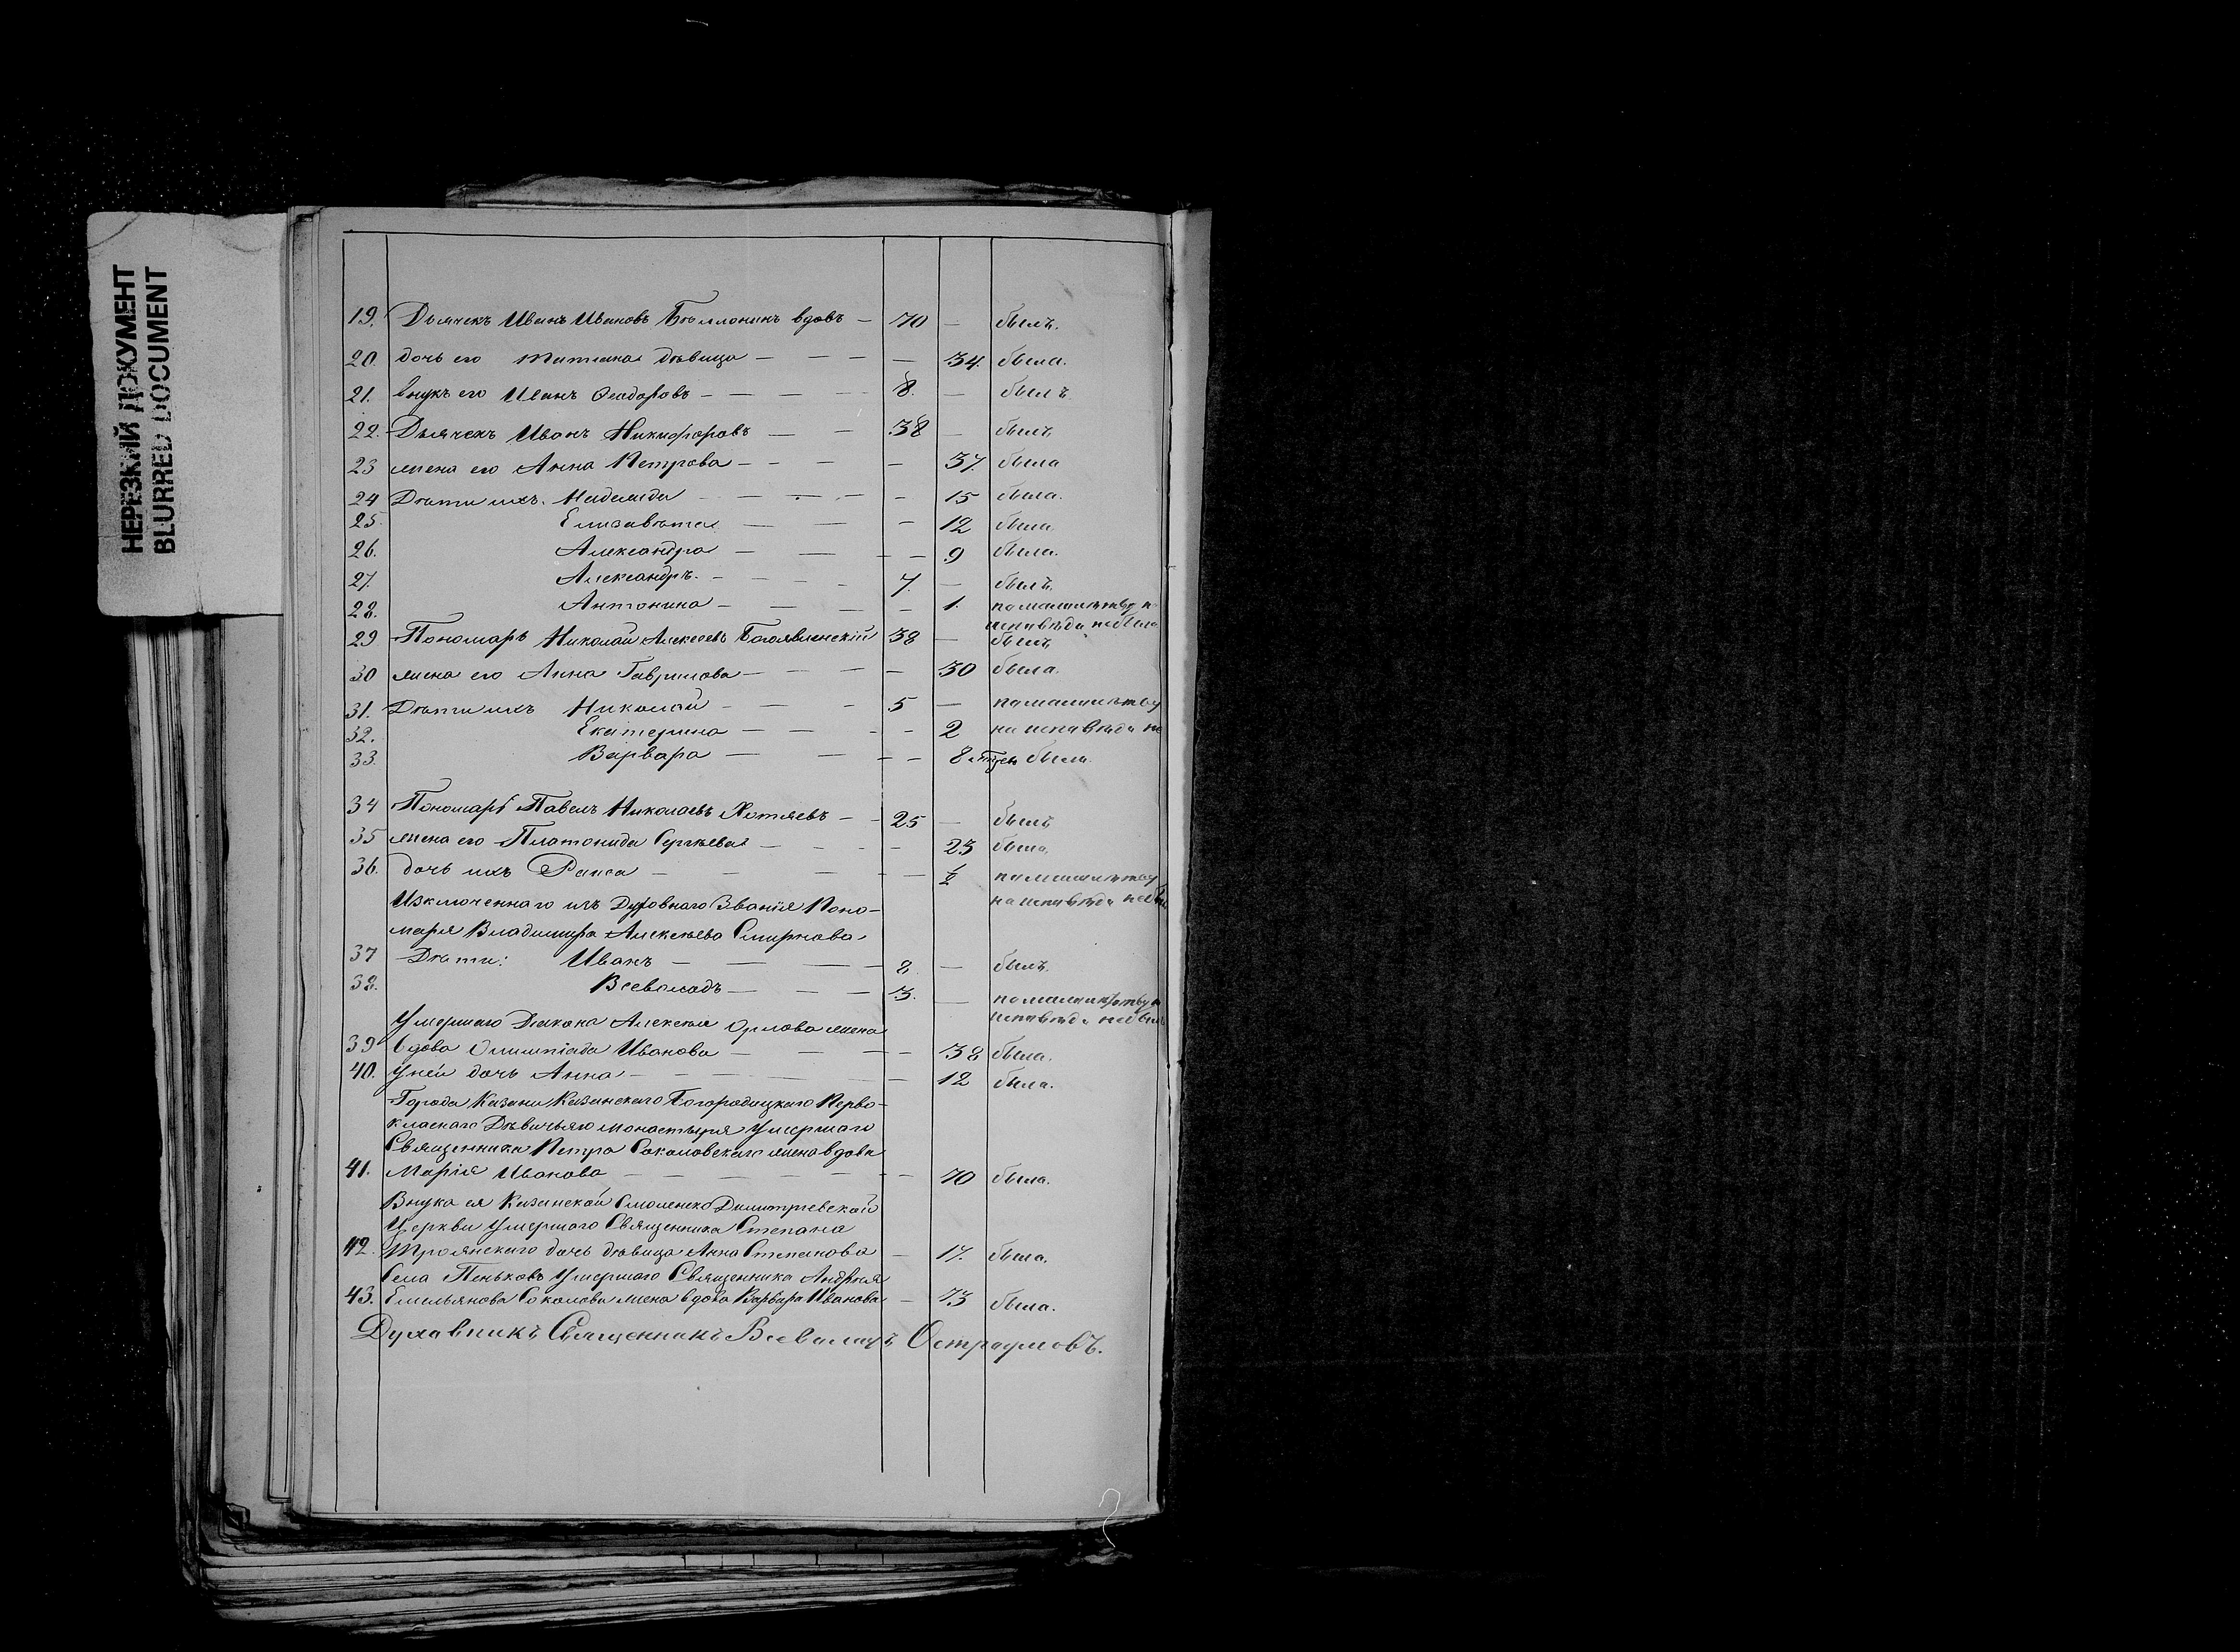 НЕРЕЗКИЙ ДОКУМЕНТ
BLURRED DOCUMENT
19. Дьячекъ Иванъ Ивановъ вдовъ — 70 — былъ.
20. дочь его Татьяна дѣвица — — — — 34. была.
21. внукъ его Иванъ Ѳеодоровъ — — — — 8. — былъ
22. Дьячекъ Иванъ Никифоровъ — — 38 — былъ
23 жена его Анна Петрова — — — — 37. была
24 Дѣти ихъ. Надежда — — — — — 15 была.
25. Елисавѣта — — — 12 была
26. Александра — — — — 9 была.
27. Александръ. — — — — 7. — былъ
28. Антонина — — — — 1. по малолѣтству на
исповѣди не была
29 Пономарь Николай Алексеевъ Богоявленскій 38 — былъ
30 жена его Анна Гаврилова — — — — 30 была.
31. Дѣти ихъ Николай — — — 5 — по малолѣтству
32. Екатерина — — — — 2 на исповѣди не
33. Варвара — — — — 8 была.
34 Пономарь Павелъ Николаевъ Хотяевъ — — 25 — былъ
35 жена его Платонида Сергѣева — — — — 23 была,
36. дочь ихъ Раиса — — — — 1/2 по малолѣтству
на исповѣди не была
Изключеннаго изъ Духовнаго Званія Поно-
маря Владимира Алексѣева Смирнова
37 Дѣти: Иванъ — — — 8. — былъ.
38. Всеволодъ — — — 3. — по малолѣтству на
исповѣди не былъ
Умершаго Діакона Алексѣя Орлова жена
39 вдова Олимпіада Иванова — — — — 38 была.
40. У ней дочь Анна — — — — — 12 была.
Города Казани Казанскаго Богородицкаго Перво-
класнаго Дѣвичьяго монастыря Умершаго
Священника Петра Соколовскаго жена вдова
41. Марія Иванова — — — — — 70 была.
Внука ея Казанской Смоленско Димитріевской
Церкви Умершаго Священника Степана
42. Троянскаго дочь дѣвица Анна Степанова — 17. была.
Села Пеньковъ Умершаго Священника Андрея
43. Емельянова Соколова жена вдова Варвара Иванова — 73 была.
Духовникъ Священникъ Всеволодъ Остроумовъ.